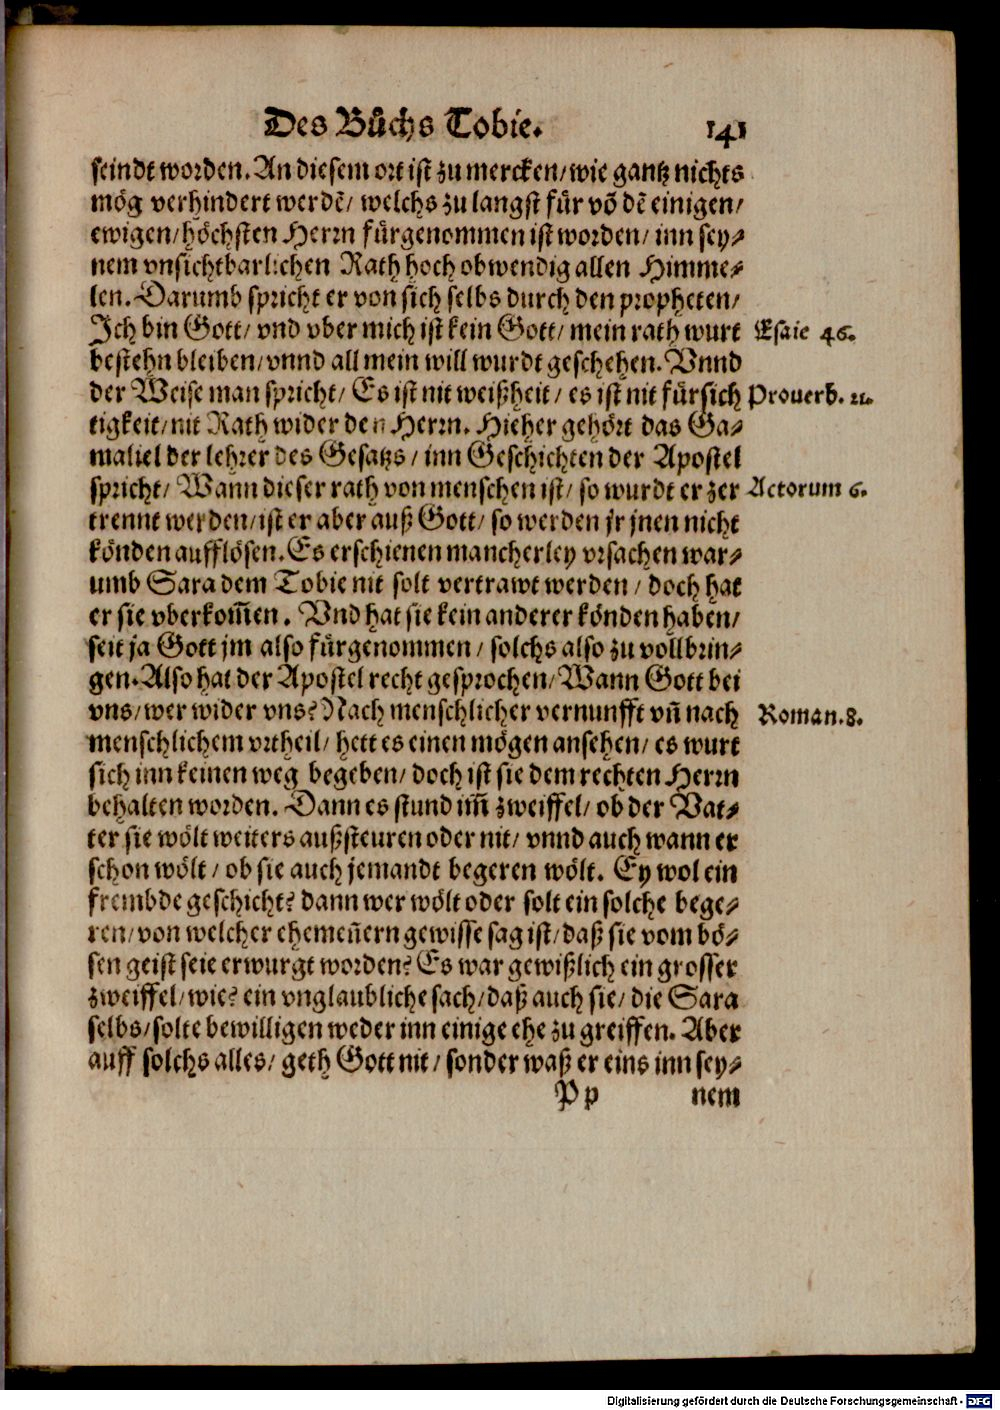 Des Bůchs Tobie. 141
seindt worden. An diesem ort ist zu mercken/ wie gantz nichts
mög verhindert werdē/ welchs zu langst für võ dē einigen/
ewigen/ höchsten Herrn fürgenommen ist worden/ inn sey⸗
nem vnsichtbarlichen Rath hoch obwendig allen Himme⸗
len. Darumb spricht er von sich selbs durch den propheten/
Ich bin Gott/ vnd vber mich ist kein Gott/ mein rath wurt Esaie 46.
bestehn bleiben/ vnnd all mein will wurdt geschehen. Vnnd
der Weise man spricht/ Es ist nit weißheit/ es ist nit fürsich Prouerb. 21.
tigkeit/ nit Rath wider den Herrn. Hieher gehört das Ga⸗
maliel der lehrer des Gesatzs/ inn Geschichten der Apostel
spricht/ Wann dieser rath von menschen ist/ so wurdt er zer Actorum 6.
trennt werden/ ist er aber auß Gott/ so werden jr jnen nicht
könden aufflösen. Es erschienen mancherley vrsachen war⸗
umb Sara dem Tobie nit solt vertrawt werden/ doch hat
er sie vberkom̄en. Vnd hat sie kein anderer könden haben/
seit ja Gott jm also fürgenommen/ solchs also zu vollbrin⸗
gen. Also hat der Apostel recht gesprochen/ Wann Gott bei
vns/ wer wider vns? Nach menschlicher vernunfft vn̄ nach Roman. 8.
menschlichem vrtheil/ hett es einen mögen ansehen/ es wurt
sich inn keinen weg begeben/ doch ist sie dem rechten Herrn
behalten worden. Dann es stund im̄ zweiffel/ ob der Vat⸗
ter sie wölt weiters außsteuren oder nit/ vnnd auch wann er
schon wölt/ ob sie auch jemandt begeren wölt. Ey wol ein
frembde geschicht? dann wer wölt oder solt ein solche bege⸗
ren/ von welcher ehemeñern gewisse sag ist/ daß sie vom bö⸗
sen geist seie erwurgt worden? Es war gewißlich ein grosser
zweiffel/ wie? ein vnglaubliche sach/ daß auch sie/ die Sara
selbs/ solte bewilligen weder inn einige ehe zu greiffen. Aber
auff solchs alles/ geth Gott nit/ sonder waß er eins inn sey⸗
Pp nem
Digitalisierung gefördert durch die Deutsche Forschungsgemeinschaft - DFG